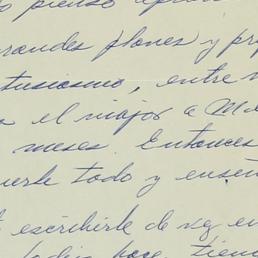 o pienso apro
grandes planes y pr
tusiasmo, entre
el major a M
meses. Entonces
erle todo y enseñ
escribirle de vg en
todio hace tiem